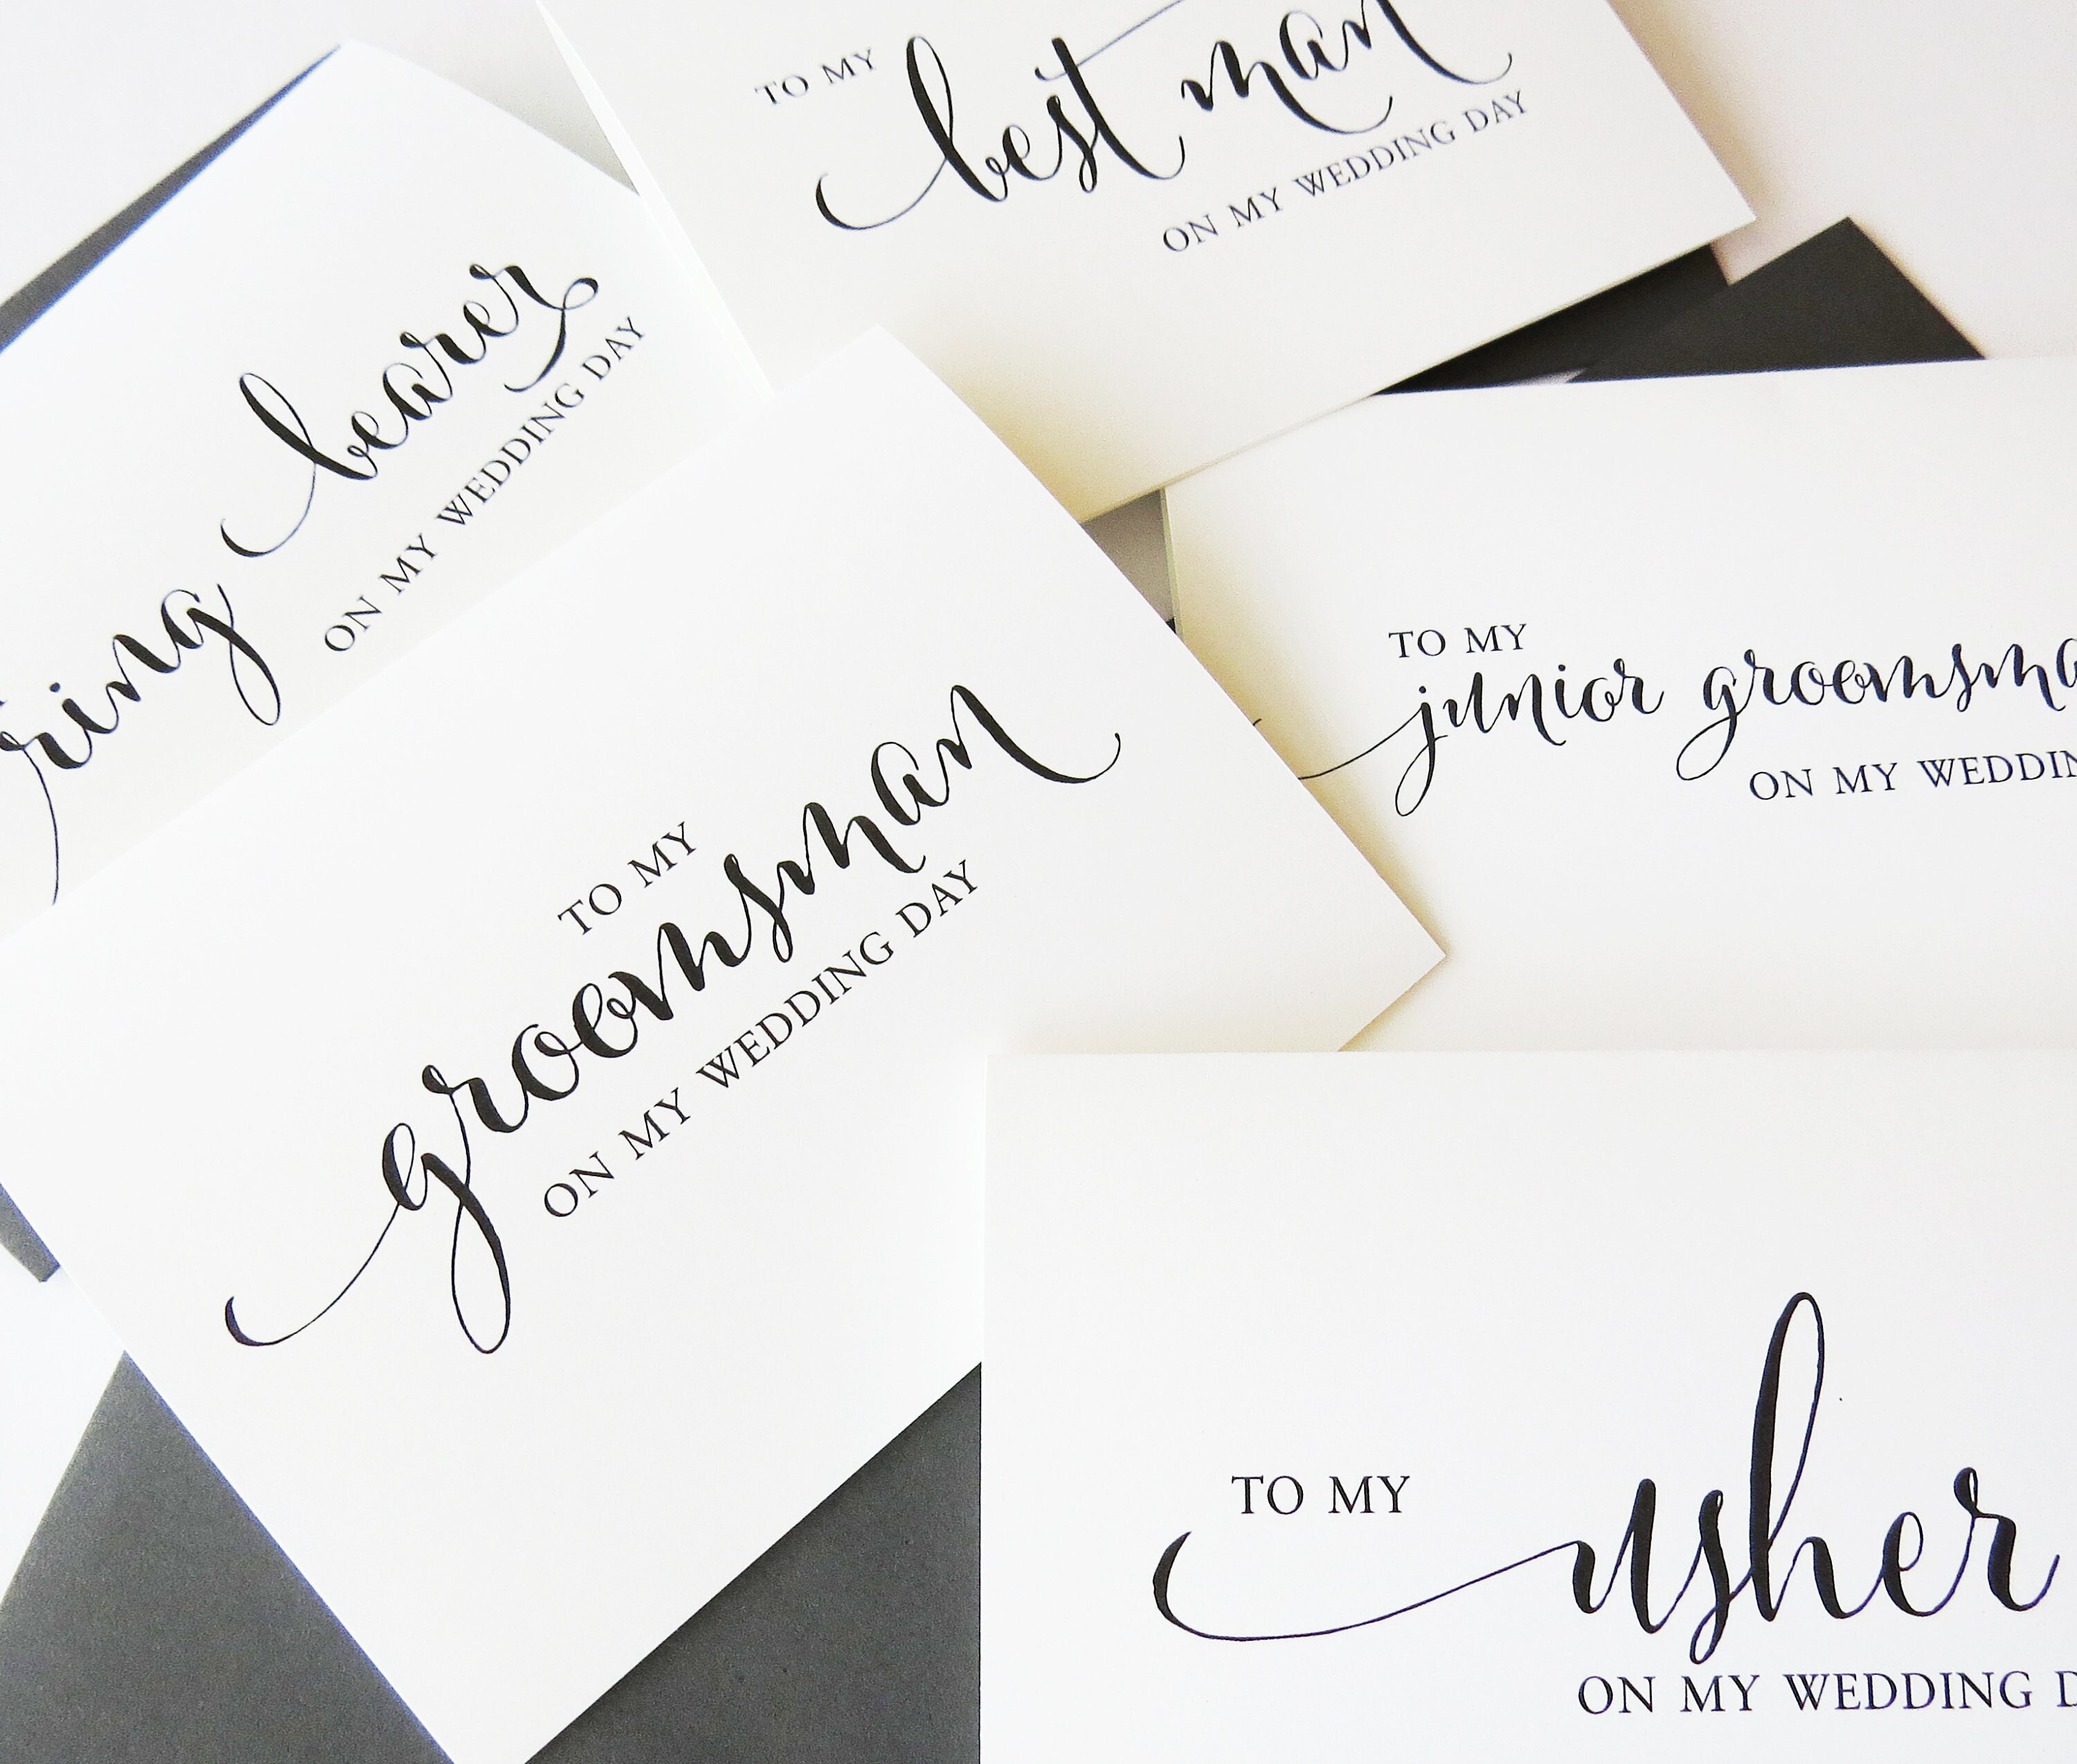 TO MY
best man
ON MY WEDDING DAY
ring bearer
ON MY WEDDING DAY
TO MY
junior groomsma
ON MY WEDDIN
TO MY
groomsman
ON MY WEDDING DAY
TO MY
usher
ON MY WEDDING D